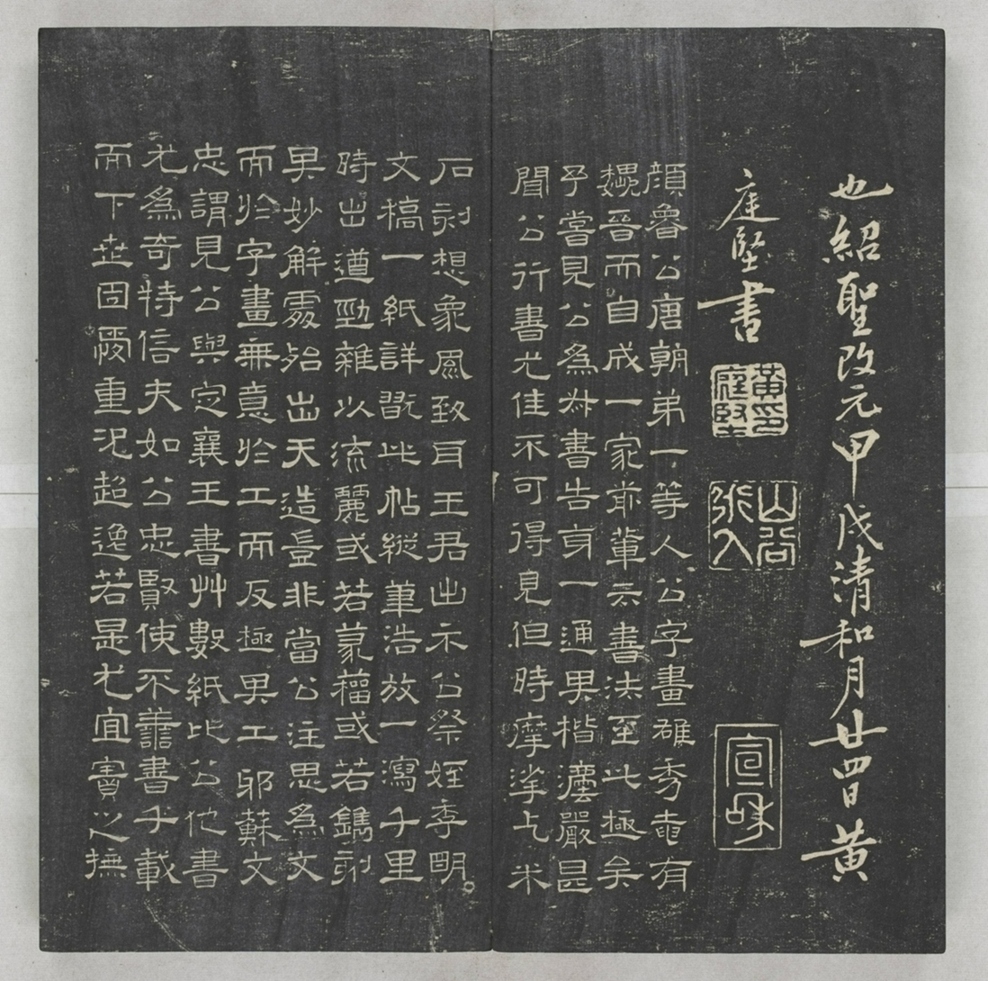 也紹聖改元甲戌清和月廿四日黃
庭堅書
黃庭堅印
山谷道人
宣和
顏魯公唐朝弟一等人公字畫雄秀奄有
魏晉而自成一家前輩云書法至此極矣
予嘗見公為書告身一通其楷灋嚴甚
聞公行書尤佳不可得見但時摩挲乞米
石刻想象風致耳王君出示公祭姪季明
文稿一紙詳翫此帖縱筆浩放一瀉千里
時出遒勁雜以流麗或若篆籀或若鐫刻
其妙解處殆出天造豈非當公注思為文
而於字畫無意於工而反極其工邪蘇文
忠謂見公與定襄王書艸數紙比公他書
尤為奇特信夫如公忠賢使不善書千載
而下世固愛重況超逸若是尤宜寶之撫